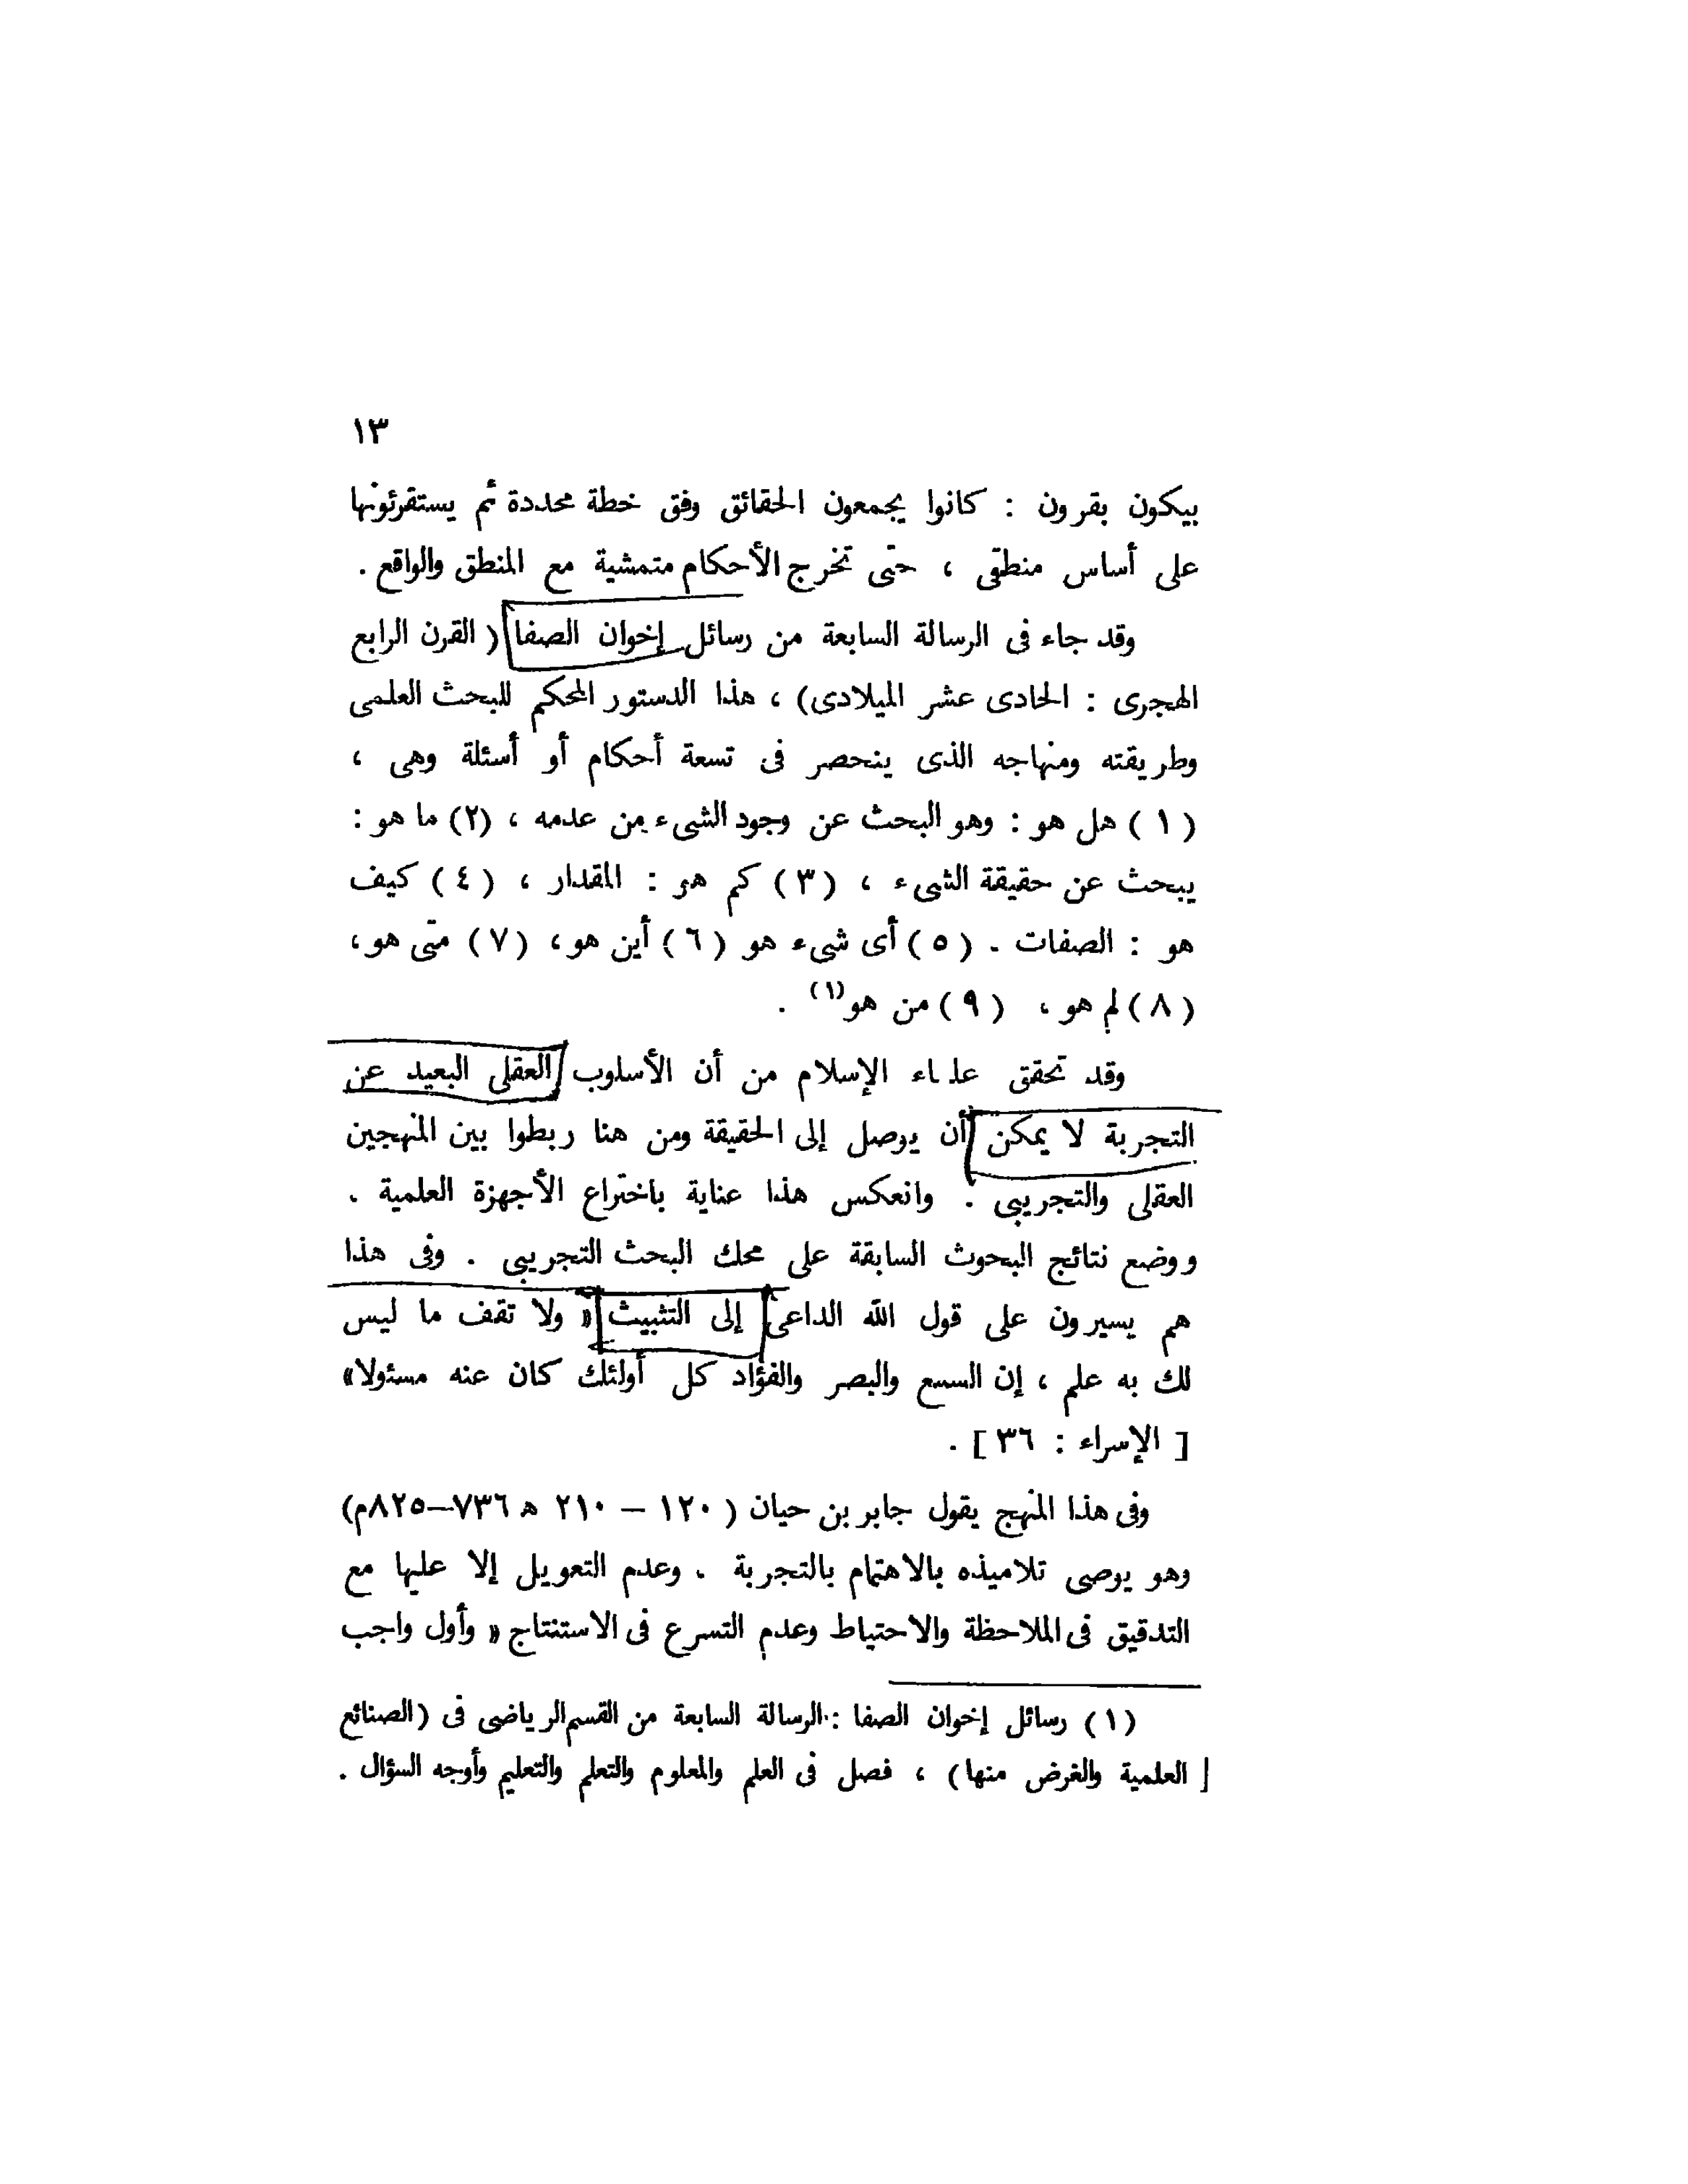 ١٣
بيكون بقرون : كانوا يجمعون الحقائق وفق خطة محددة ثم يستقرئونها
على أساس منطقى ، حتى تخرج الأحكام متمشية مع المنطق والواقع .
وقد جاء فى الرسالة السابعة من رسائل إخوان الصفا ( القرن الرابع
الهجرى : الحادى عشر الميلادى) ، هذا الدستور المحكم للبحث العلمى
وطريقته ومنهاجه الذى ينحصر فى تسعة أحكام أو أسئلة وهى ،
( ١ ) هل هو : وهو البحث عن وجود الشىء من عدمه ، (٢) ما هو :
يبحث عن حقيقة الشىء ، ( ٣ ) كم هو : المقدار ، ( ٤ ) كيف
هو : الصفات . ( ٥ ) أى شىء هو ( ٦ ) أين هو ، ( ٧ ) متى هو ،
( ٨ ) لم هو ، ( ٩ ) من هو(١) .
وقد تحقق علماء الإسلام من أن الأسلوب العقلى البعيد عن
التجربة لا يمكن أن يوصل إلى الحقيقة ومن هنا ربطوا بين المنهجين
العقلى والتجريبى . وانعكس هذا عناية باختراع الأجهزة العلمية .
ووضع نتائج البحوث السابقة على محك البحث التجريبى . وفى هذا
هم يسيرون على قول الله الداعى إلى التثبيث « ولا تقف ما ليس
لك به علم ، إن السمع والبصر والفؤاد كل أولئك كان عنه مسئولا»
[ الإسراء : ٣٦ ] .
وفى هذا المنهج يقول جابر بن حيان ( ١٢٠ – ٢١٠ ه ٧٣٦–٨٢٥م)
وهو يوصى تلاميذه بالاهتمام بالتجربة . وعدم التعويل إلا عليها مع
التدقيق فى الملاحظة والاحتياط وعدم التسرع فى الاستنتاج « وأول واجب
( ١ ) رسائل إخوان الصفا : الرسالة السابعة من القسم الرياضى فى (الصنائع
العلمية والغرض منها) ، فصل فى العلم والمعلوم والتعلم والتعليم وأوجه السؤال .